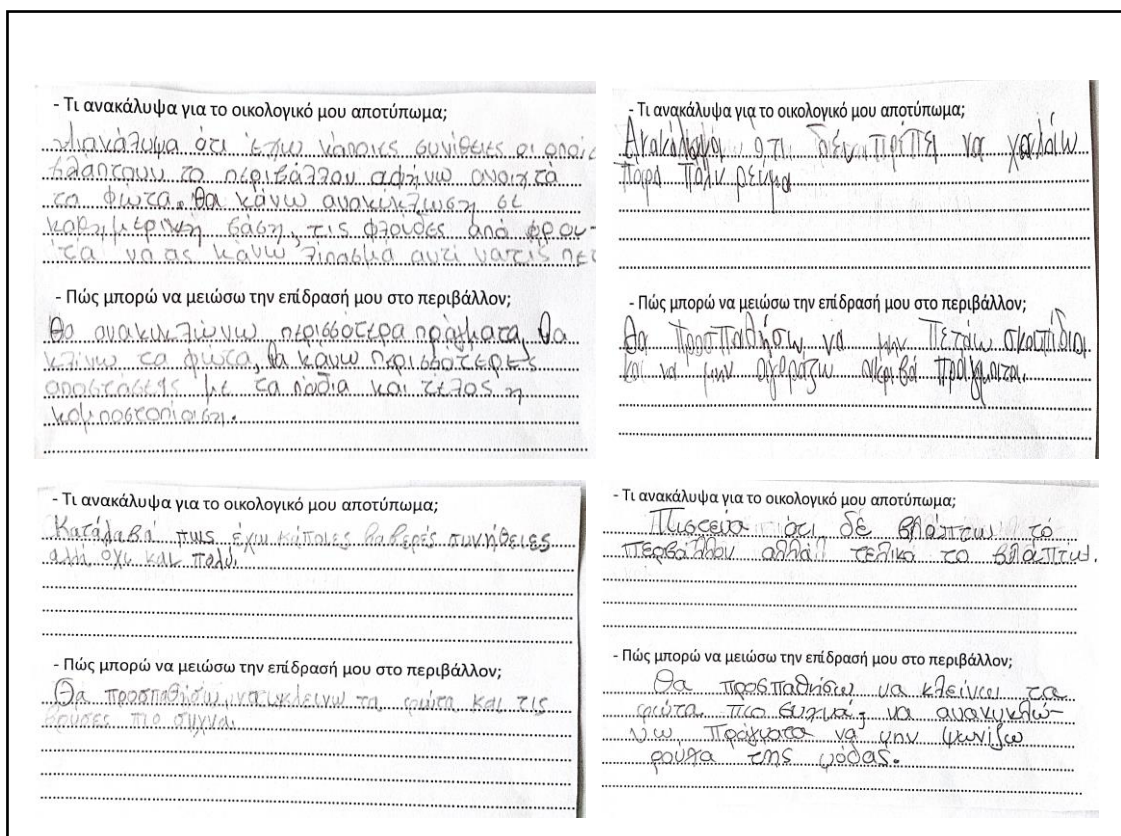 - Τι ανακάλυψα για το οικολογικό μου αποτύπωμα;
ότι έχω κάποιες συνίθειες οι οποίε
βλάπτουν το περιβάλλον αφήνω ανοιχτά
τα φώτα. Θα κάνω ανακυκλωση σε
καθημερινή βάση, τις φλούδες από φρου-
τα να ας κάνω λιπασμά αντί να τις πετ
- Πώς μπορώ να μειώσω την επίδρασή μου στο περιβάλλον;
Θα ανακυκλώνω περισσότερα πράγματα, θα
κλίνω τα φώτα, θα κάνω περισσότερες
αποστάσεις με τα πόδια και τέλος η
κομποστοπίαση.
- Τι ανακάλυψα για το οικολογικό μου αποτύπωμα;
Ανακάλυψα ότι δεν πρέπει να χαλάω
πάρα πολύ ρεύμα
- Πώς μπορώ να μειώσω την επίδρασή μου στο περιβάλλον;
Θα προσπαθήσω να μην πετάω σκουπίδια
και να μην αγοράζω ακριβά πράγματα.
- Τι ανακάλυψα για το οικολογικό μου αποτύπωμα;
Κατάλαβα πως έχω κάποιες βαβερές συνήθειες
αλλά όχι και πολύ.
- Πώς μπορώ να μειώσω την επίδρασή μου στο περιβάλλον;
Θα προσπαθήσω να κλεινω τα φώτα και τις
βρυσες πιο συχνα.
- Τι ανακάλυψα για το οικολογικό μου αποτύπωμα;
Πιστευα ότι δε βλάπτω το
περβάλλον αλλά τελικά το βλάπτω.
- Πώς μπορώ να μειώσω την επίδρασή μου στο περιβάλλον;
Θα προσπαθήσω να κλείνω τα
φώτα πιο συχνά, να ανακυκλώ-
νω πράγματα να μην ψωνίζω
ρούχα της μόδας.